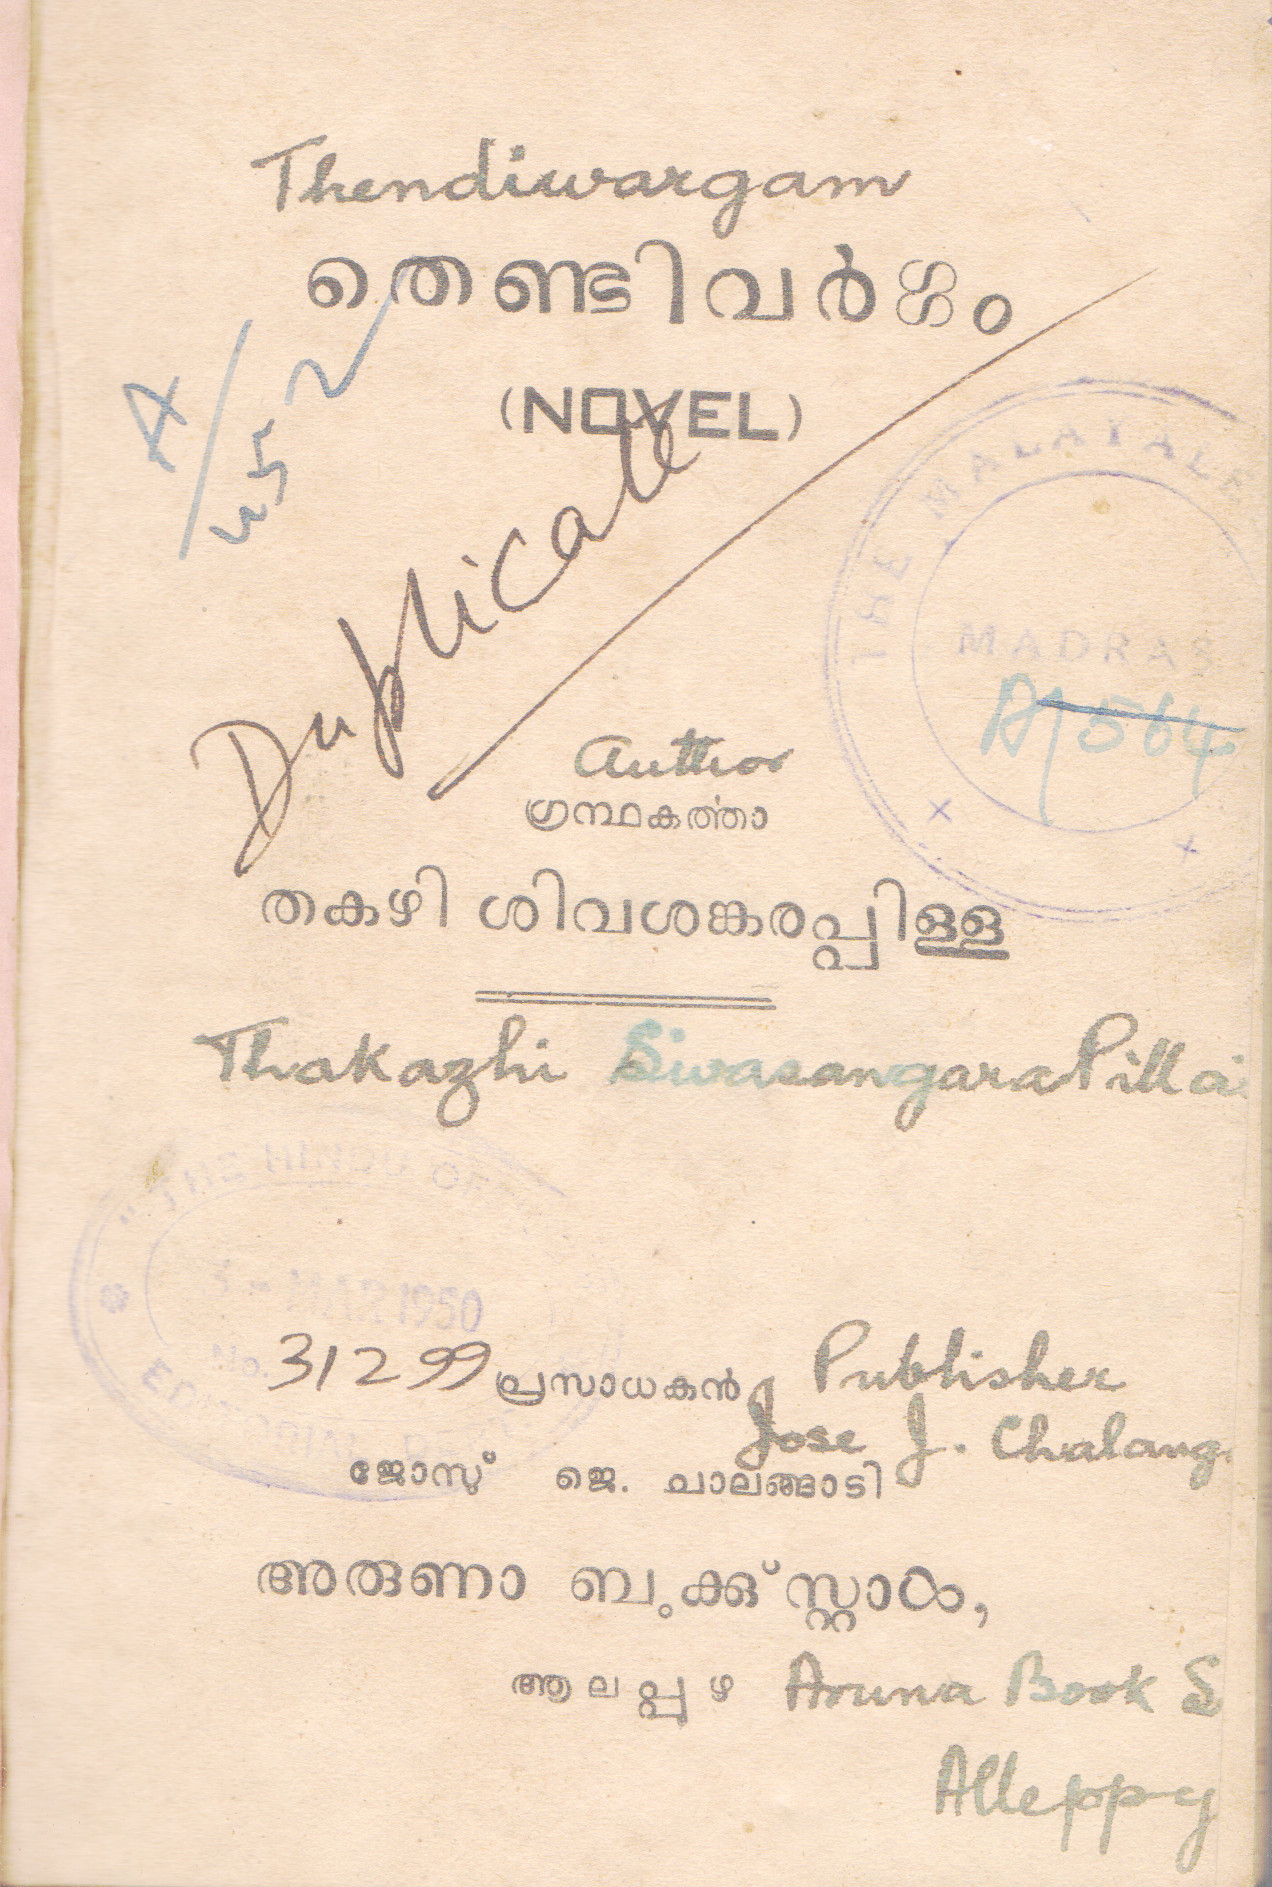 Thendiwargam
തെണ്ടിവർഗ്ഗം
(NOVEL)
A/452
Duplicate
THE MALAYALE
MADRAS
A/564
Author
ഗ്രന്ഥകർത്താ
തകഴി ശിവശങ്കരപ്പിള്ള
Thakazhi Sivasangara Pillai
"THE HINDU OF
MAR 1950
No. 31299
പ്രസാധകൻ Publisher
Jose J. Chalang
ജോസ് ജെ. ചാലങ്ങാടി
അരുണാ ബുക്കുസ്റ്റാൾ,
ആലപ്പുഴ Aruna Book S
Alleppy